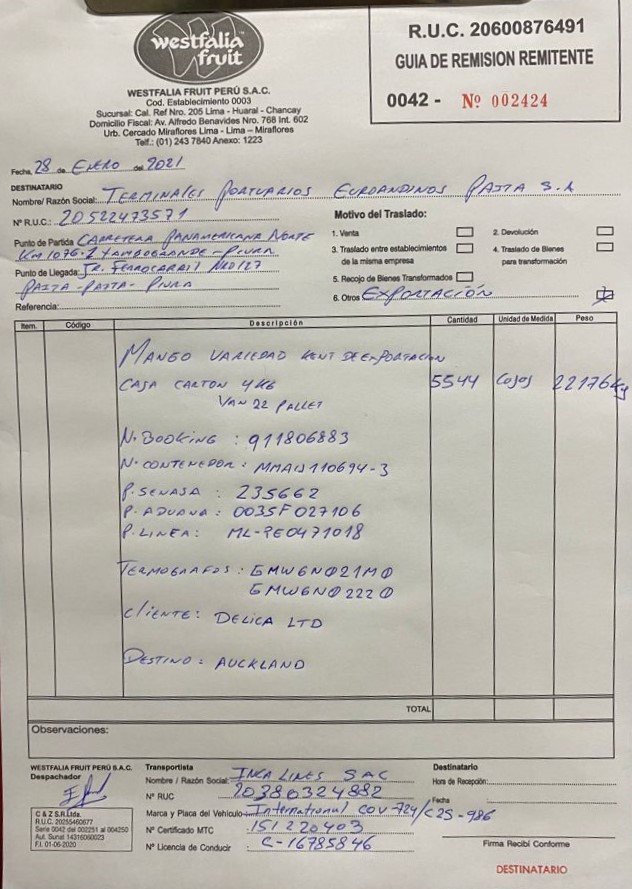 westfalia
fruit
WESTFALIA FRUIT PERÚ S.A.C.
Cod. Establecimiento 0003
Sucursal: Cal. Ref Nro. 205 Lima - Huaral - Chancay
Domicilio Fiscal: Av. Alfredo Benavides Nro. 768 Int. 602
Urb. Cercado Miraflores Lima - Lima – Miraflores
Telf.: (01) 243 7840 Anexo: 1223
R.U.C. 20600876491
GUIA DE REMISION REMITENTE
0042 - Nº 002424
Fecha, 28 de ENERO del 2021
DESTINATARIO
Nombre/ Razón Social: TERMINALES PORTUARIOS EUROANDINOS PAITA S.A
Nº R.U.C.: 20522473571
Punto de Partida CARRETERA PANAMERICANA NORTE
KM 1076.2 TAMBOGRANDE-PIURA
Punto de Llegada: JR. FERROCARRIL NRO 127
PAITA-PAITA-PIURA
Referencia:
Motivo del Traslado:
1. Venta
2. Devolución
3. Traslado entre establecimientos de la misma empresa
4. Traslado de Bienes para transformación
5. Recojo de Bienes Transformados
6. Otros EXPORTACIÓN
Item. Código Descripción Cantidad Unidad de Medida Peso
MANGO VARIEDAD KENT DE EXPORTACION
CAJA CARTON 4 KG 5544 Cajas 22176 Kg
VAN 22 PALLET
N. BOOKING : 911806883
N. CONTENEDOR : MMAU 110694-3
P. SENASA : 235662
P. ADUANA : 0035F027106
P. LINEA : ML-PE0471018
TERMOGRAFOS : GMWGNØ21MØ
GMWGNØ222Ø
Cliente: DELICA LTD
DESTINO: AUCKLAND
TOTAL
Observaciones:
WESTFALIA FRUIT PERÚ S.A.C.
Despachador
C & Z S.R.Ltda.
R.U.C. 20255460677
Serie 0042 del 002251 al 004250
Aut. Sunat 14316060023
F.I. 01-06-2020
Transportista
Nombre / Razón Social: INCA LINES SAC
Nº RUC 20380324882
Marca y Placa del Vehículo International COV-724/C2S-986
Nº Certificado MTC 151220403
Nº Licencia de Conducir C-16785846
Destinatario
Hora de Recepción:
Fecha
Firma Recibí Conforme
DESTINATARIO